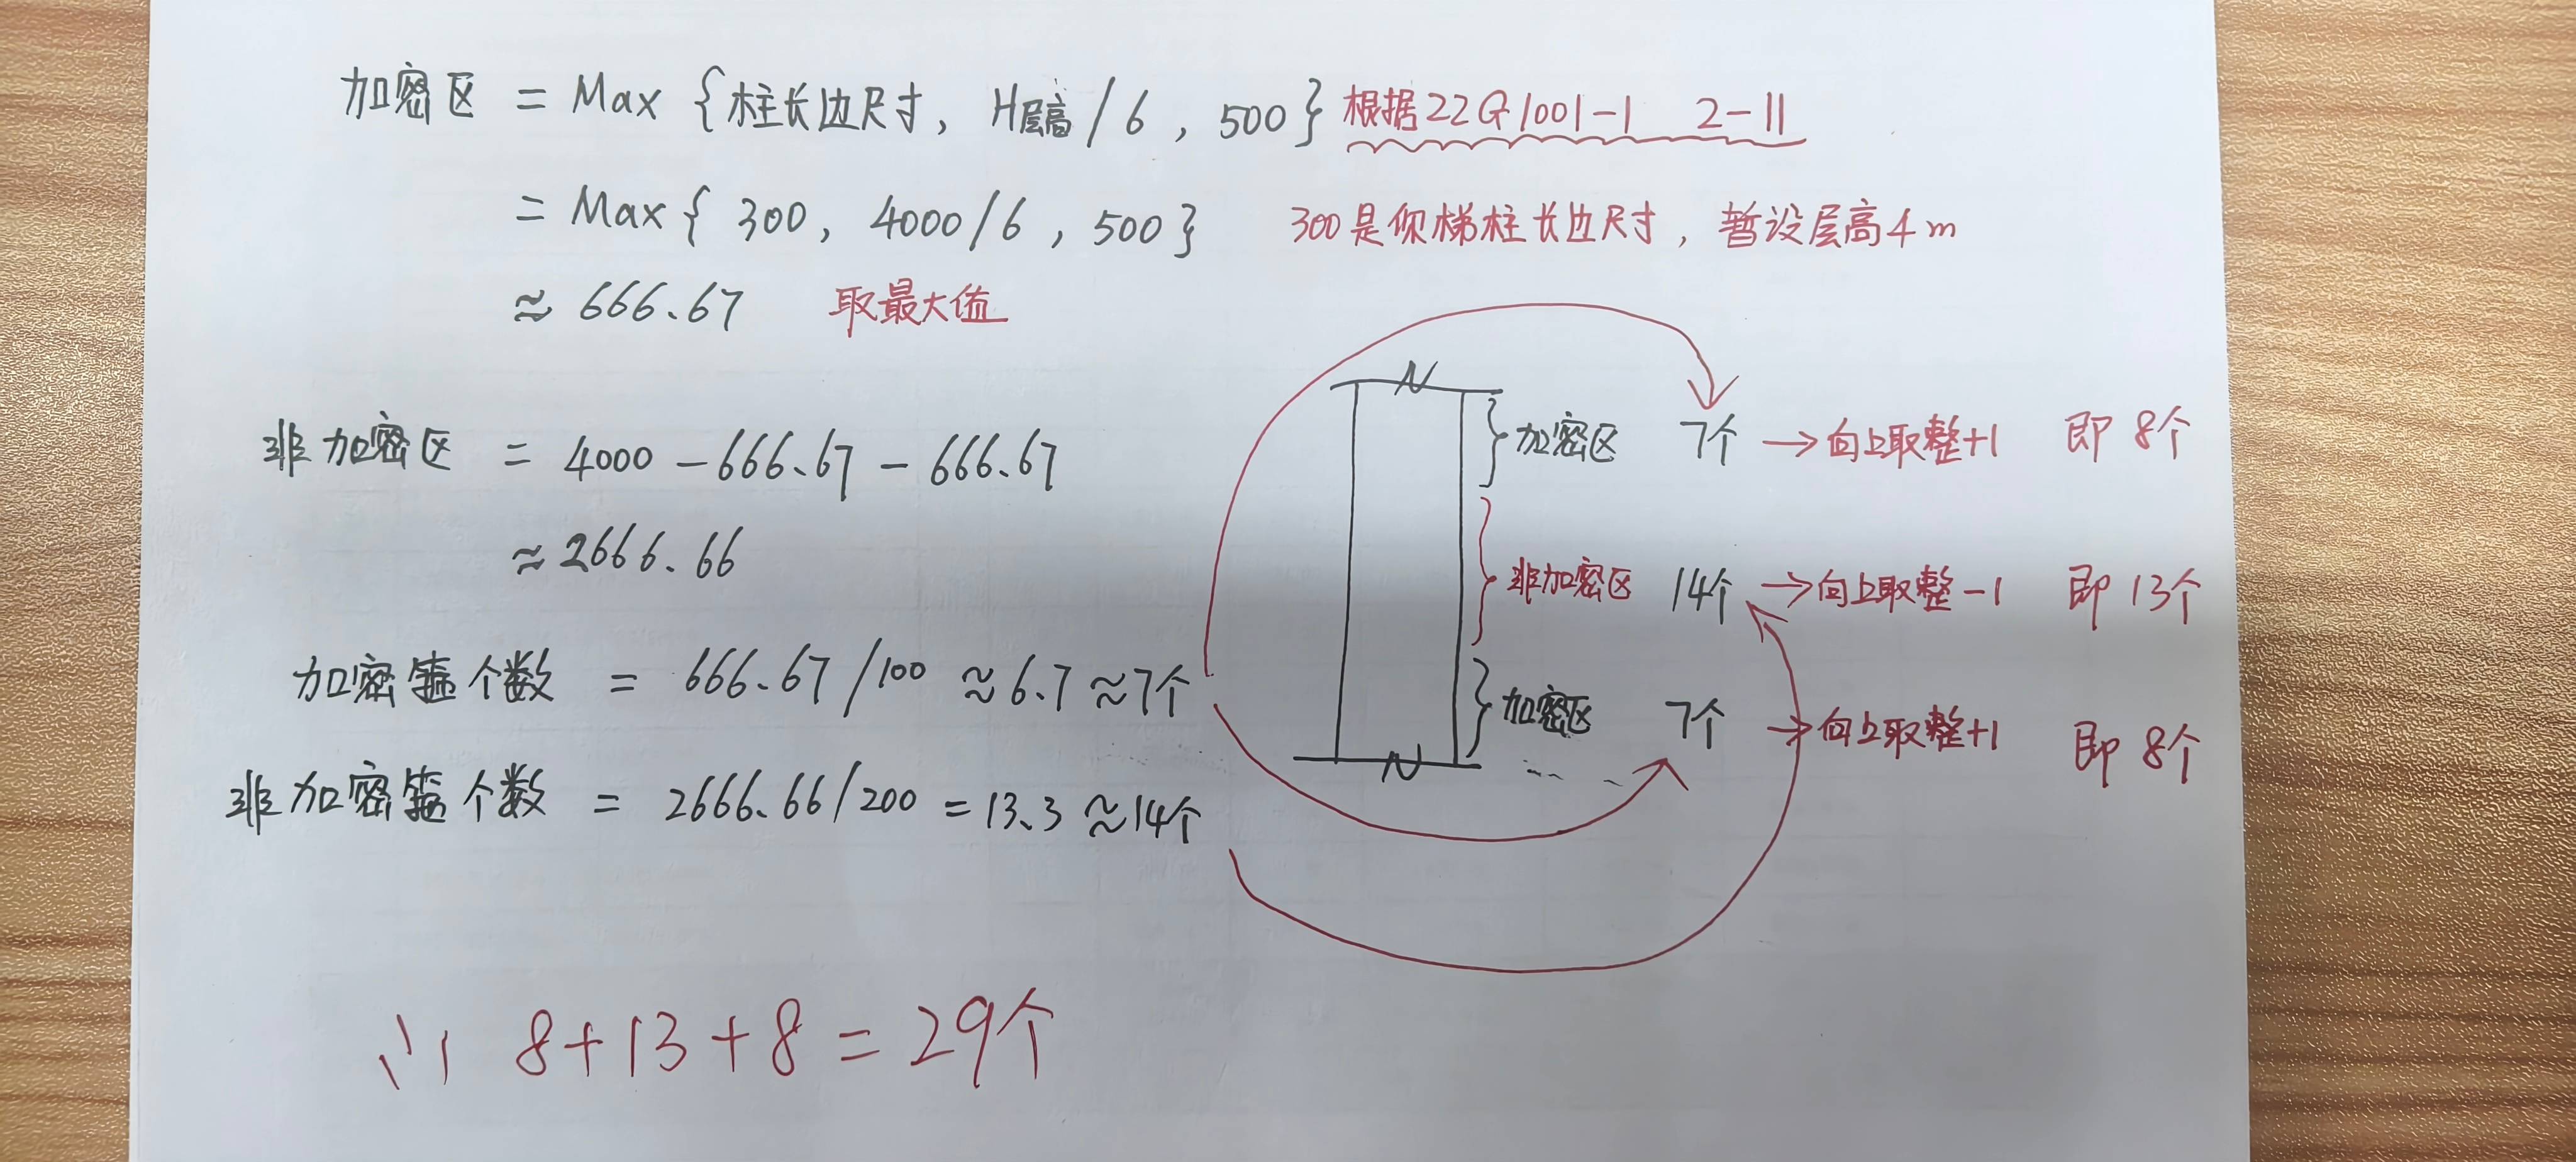 加密区 = Max {柱长边尺寸, H层高/6, 500} 根据22G1001-1 2-11
= Max { 300, 4000/6, 500} 300是你梯柱长边尺寸, 暂设层高4m
≈ 666.67 取最大值
非加密区 = 4000 - 666.67 - 666.67
≈ 2666.66
加密箍个数 = 666.67/100 ≈ 6.7 ≈ 7个
非加密箍个数 = 2666.66/200 = 13.3 ≈ 14个
N
加密区 7个 → 向上取整+1 即 8个
非加密区 14个 → 向上取整-1 即 13个
加密区 7个 → 向上取整+1 即 8个
N
8+13+8 = 29个